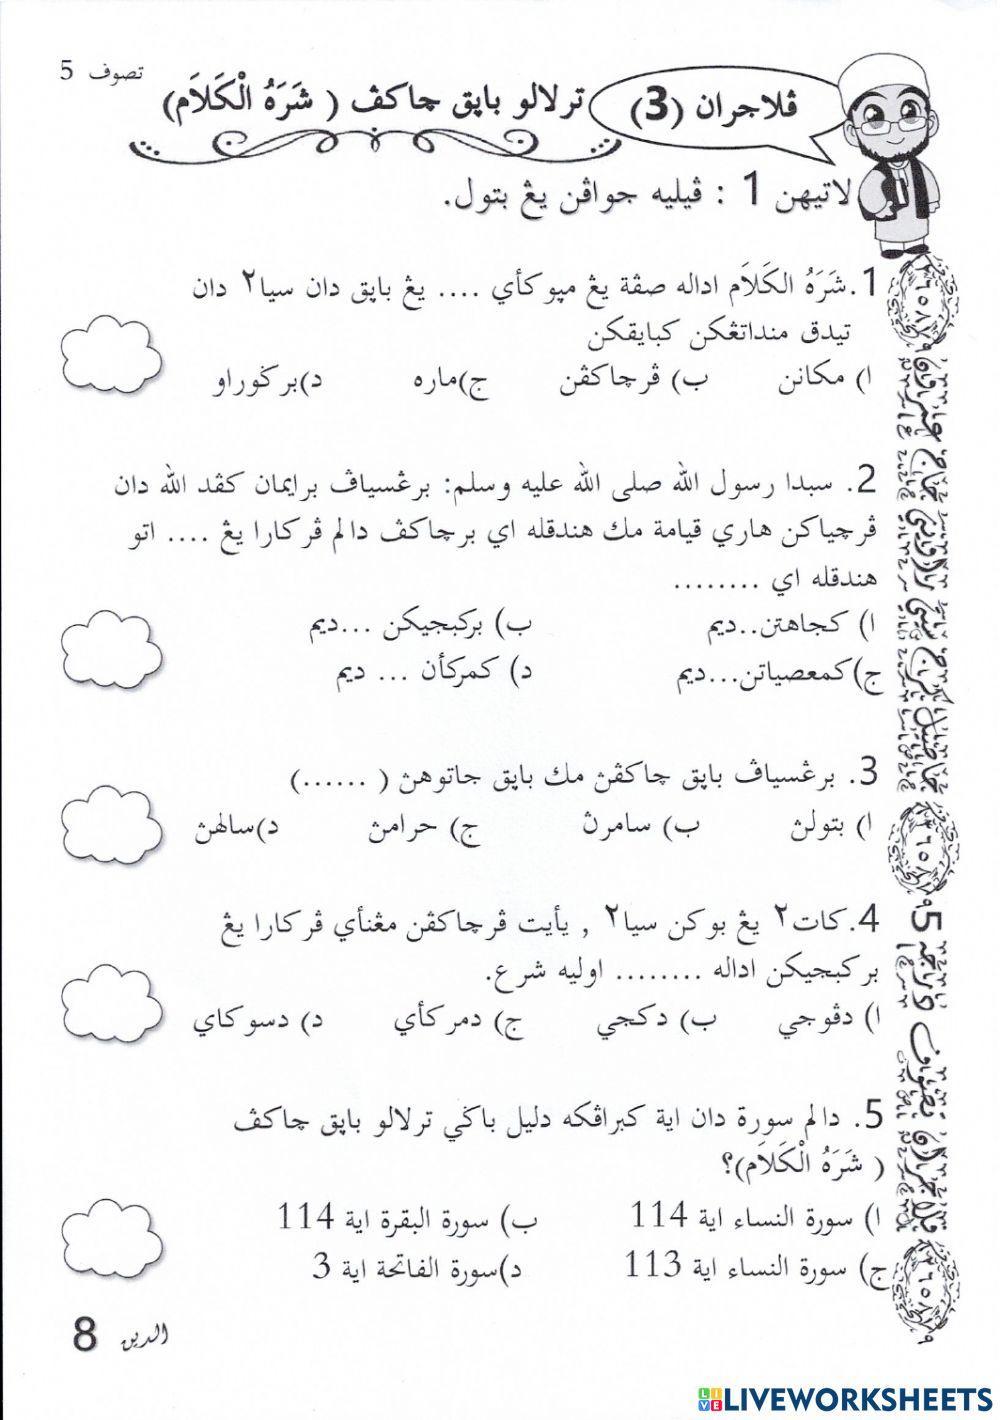 تصوف 5
ڤلاجران (3) ترلالو باڽق چاكڤ ( شَرَهُ الْكَلاَم)
لاتيهن 1 : ڤيليه جواڤن يڠ بتول.
1.شَرَهُ الكَلاَم اداله صفة يڠ مڽوكأي .... يڠ باڽق دان سيا٢ دان
تيدق منداتڠكن كبايقكن
ا) مكانن ب) ڤرچاكڤن ج)ماره د)برڬوراو
2. سبدا رسول الله صلى الله عليه وسلم: برڠسياڤ برايمان كڤد الله دان
ڤرچياكن هاري قيامة مك هندقله اي برچاكڤ دالم ڤركارا يڠ .... اتو
هندقله اي ........
ا) كجاهتن..ديم ب) بركبجيكن ...ديم
ج)كمعصياتن...ديم د) كمركأن ... ديم
3. برڠسياڤ باڽق چاكڤڽ مك باڽق جاتوهڽ ( ......)
ا) بتولڽ ب) سامرڽ ج) حرامڽ د)سالهڽ
4.كات٢ يڠ بوكن سيا٢ , يأيت ڤرچاكڤن مڠنأي ڤركارا يڠ
بركبجيكن اداله ........ اوليه شرع.
ا) دڤوجي ب) دكجي ج) دمركأي د) دسوكاي
5. دالم سورة دان اية كبراڤكه دليل باڬي ترلالو باڽق چاكڤ
( شَرَهُ الْكَلاَم)؟
ا) سورة النساء اية 114 ب) سورة البقرة اية 114
ج) سورة النساء اية 113 د)سورة الفاتحة اية 3
الدين 8
LIVEWORKSHEETS